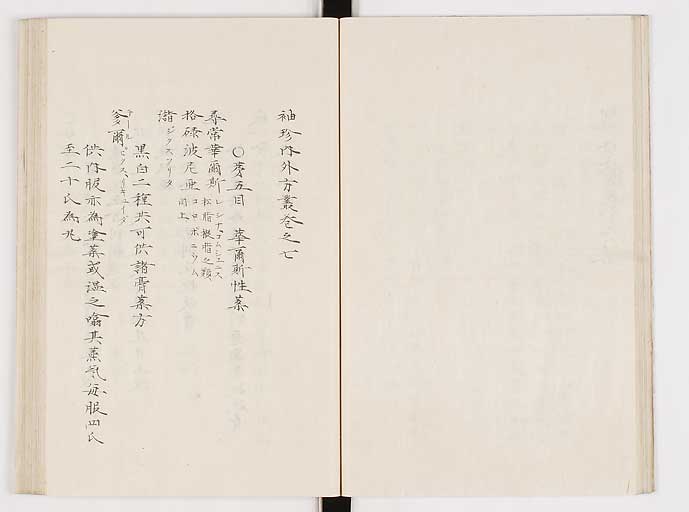 袖珍内外方叢巻之七
〇第五目　華爾斯性薬
尋常華爾斯 レシナコムミュニス 松脂樅脂之類
格碌波尼亜 コロホニウム 同上
瀦 ピクスアリダ
黒白二種共可供諸膏薬方
爹爾 テール ピクスリキュイダ
供内服亦為塗薬或温之嗡其蒸気毎服四氏
至二十氏為丸